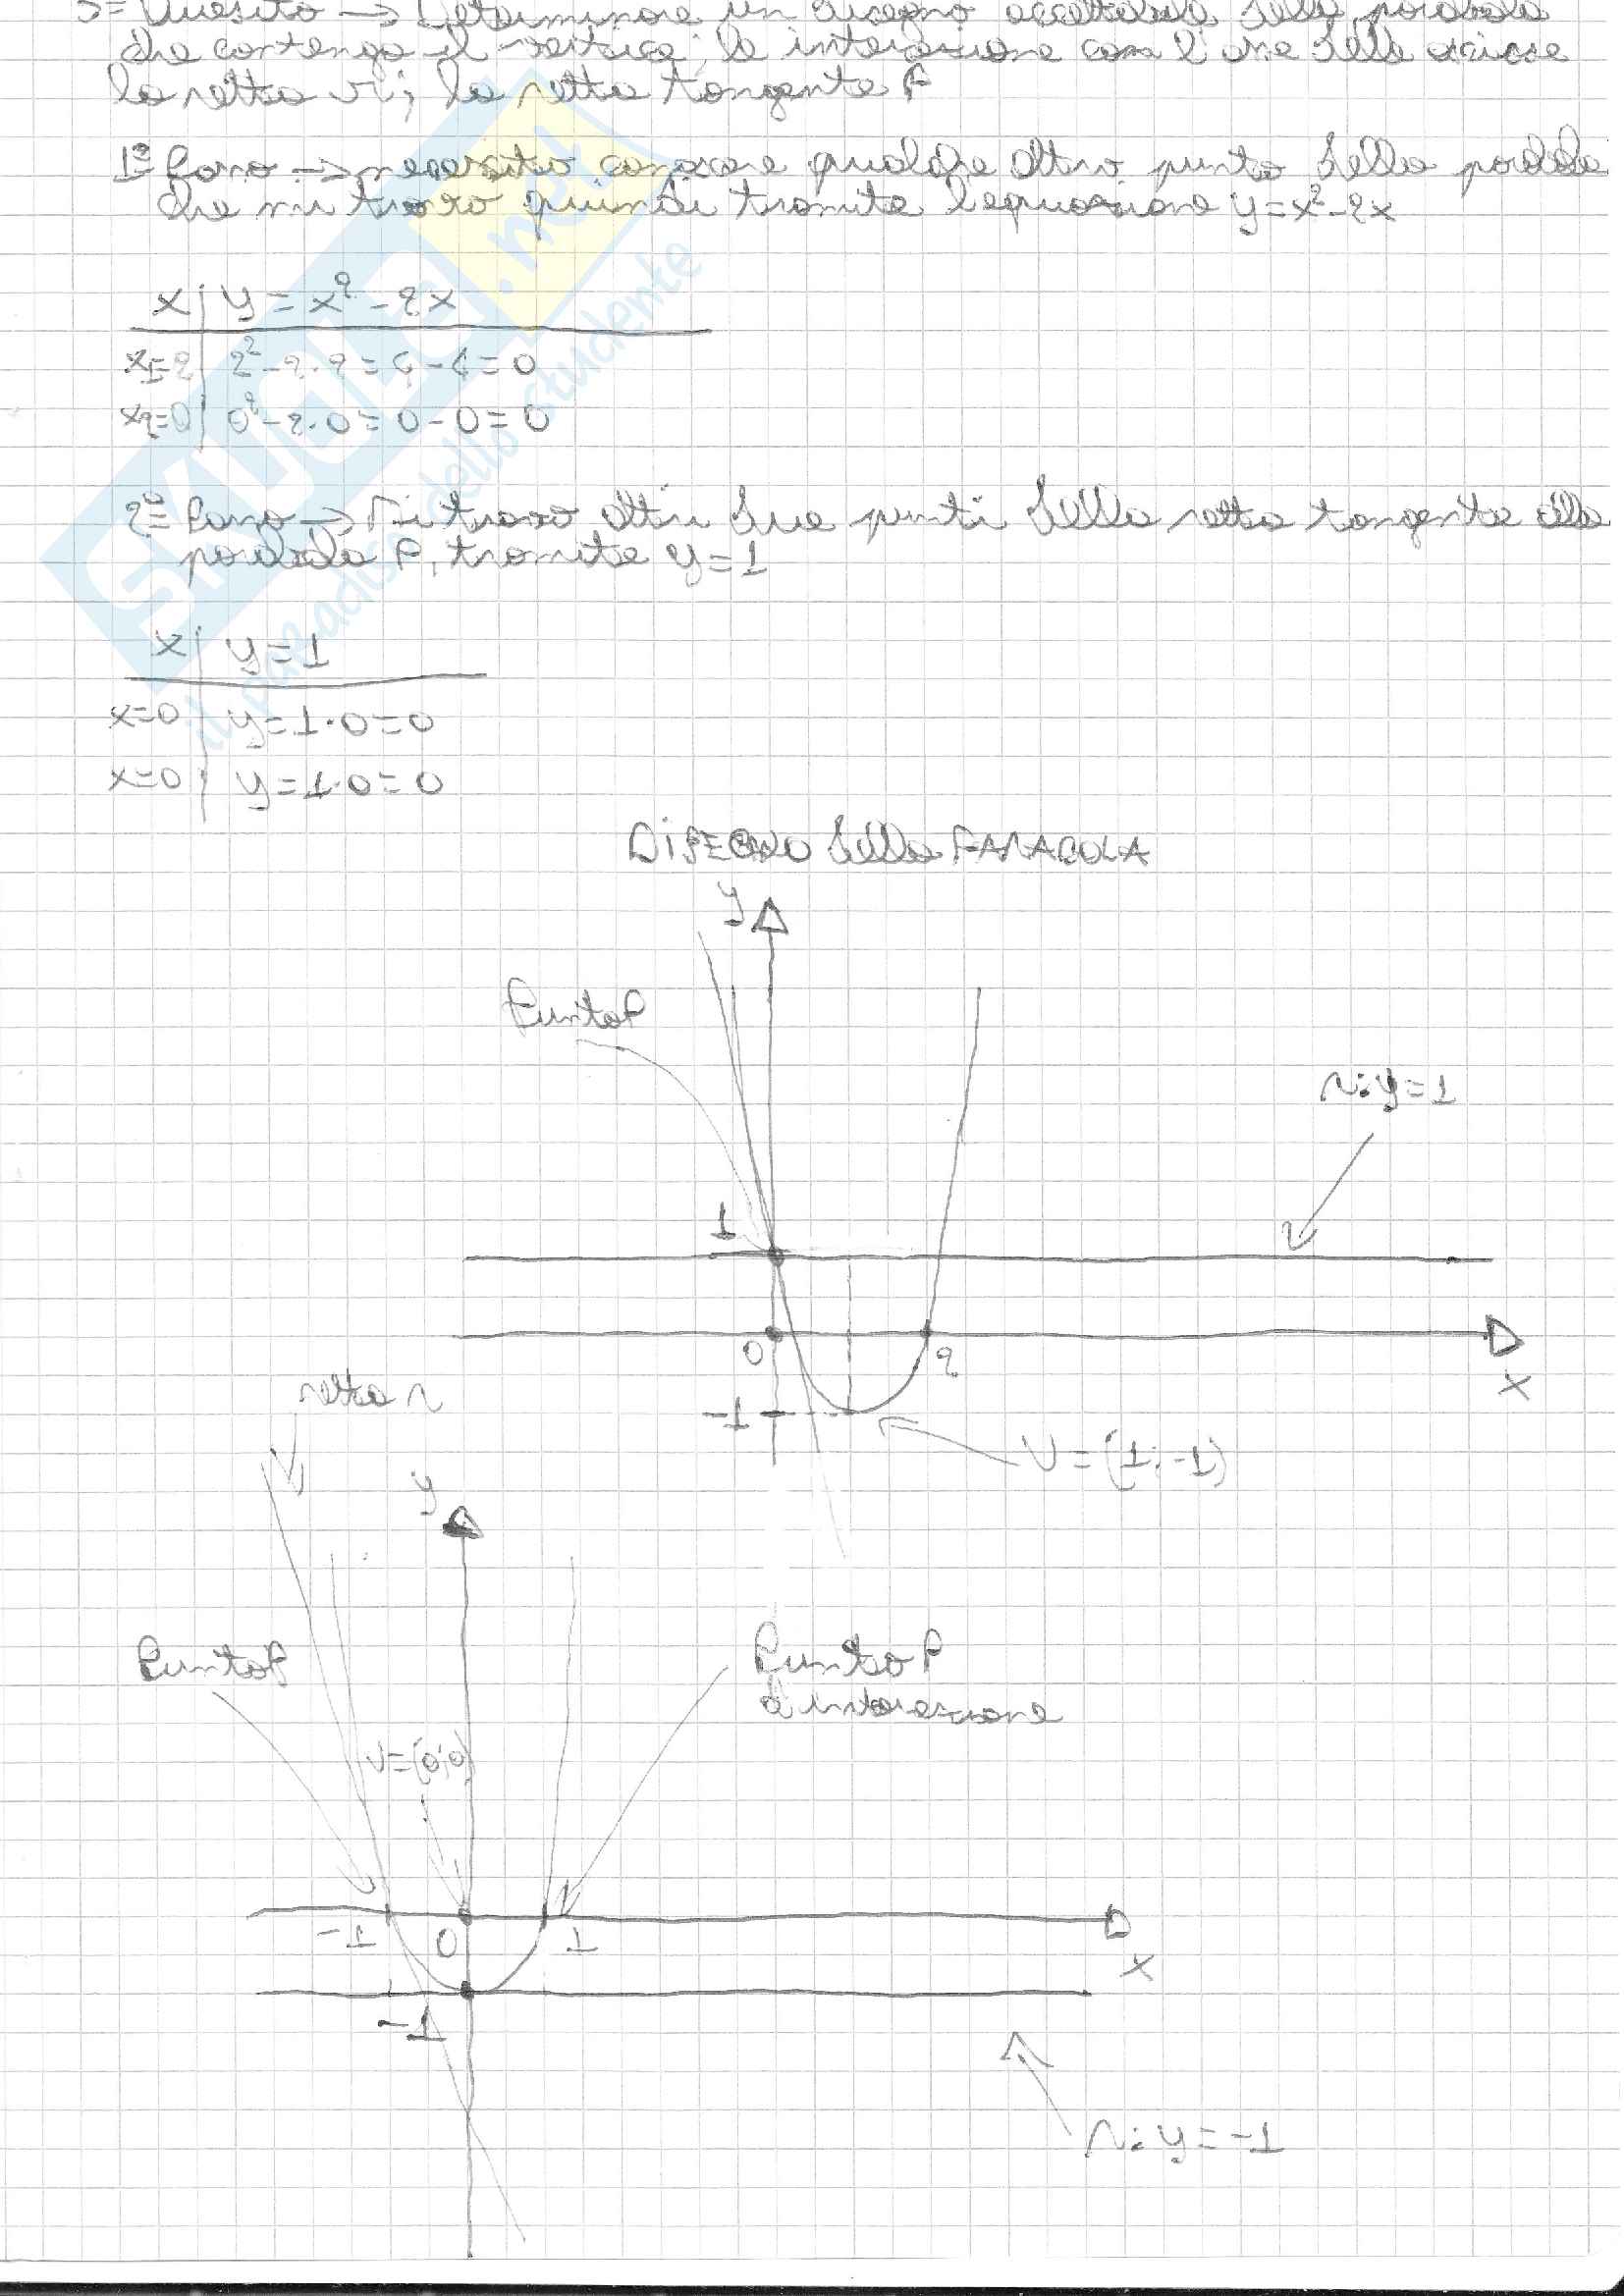 5º Quesito → Determinare un disegno accettabile della parabola
che contenga il vertice; le intersezione con l'asse delle ascisse
la retta r; la retta tangente P
1º Passo → necessito conoscere qualche altro punto della parabola
che mi trovo quindi tramite l'equazione y=x²-2x
x | y=x²-2x
x1=2 | 2²-2·2=4-4=0
x2=0 | 0²-2·0=0-0=0
2º Passo → Mi trovo altri due punti della retta tangente alla
parabola P, tramite y=1
x | y=1
x=0 | y=1·0=0
x=0 | y=1·0=0
DISEGNO della PARABOLA
y
Punto P
r:y=1
1
0
2
x
-1
V=(1;-1)
retta r
y
Punto P
Punto P
d'intersezione
V=(0;0)
-1
0
1
x
-1
r:y=-1
SKUOLA.net
il paradiso dello studente